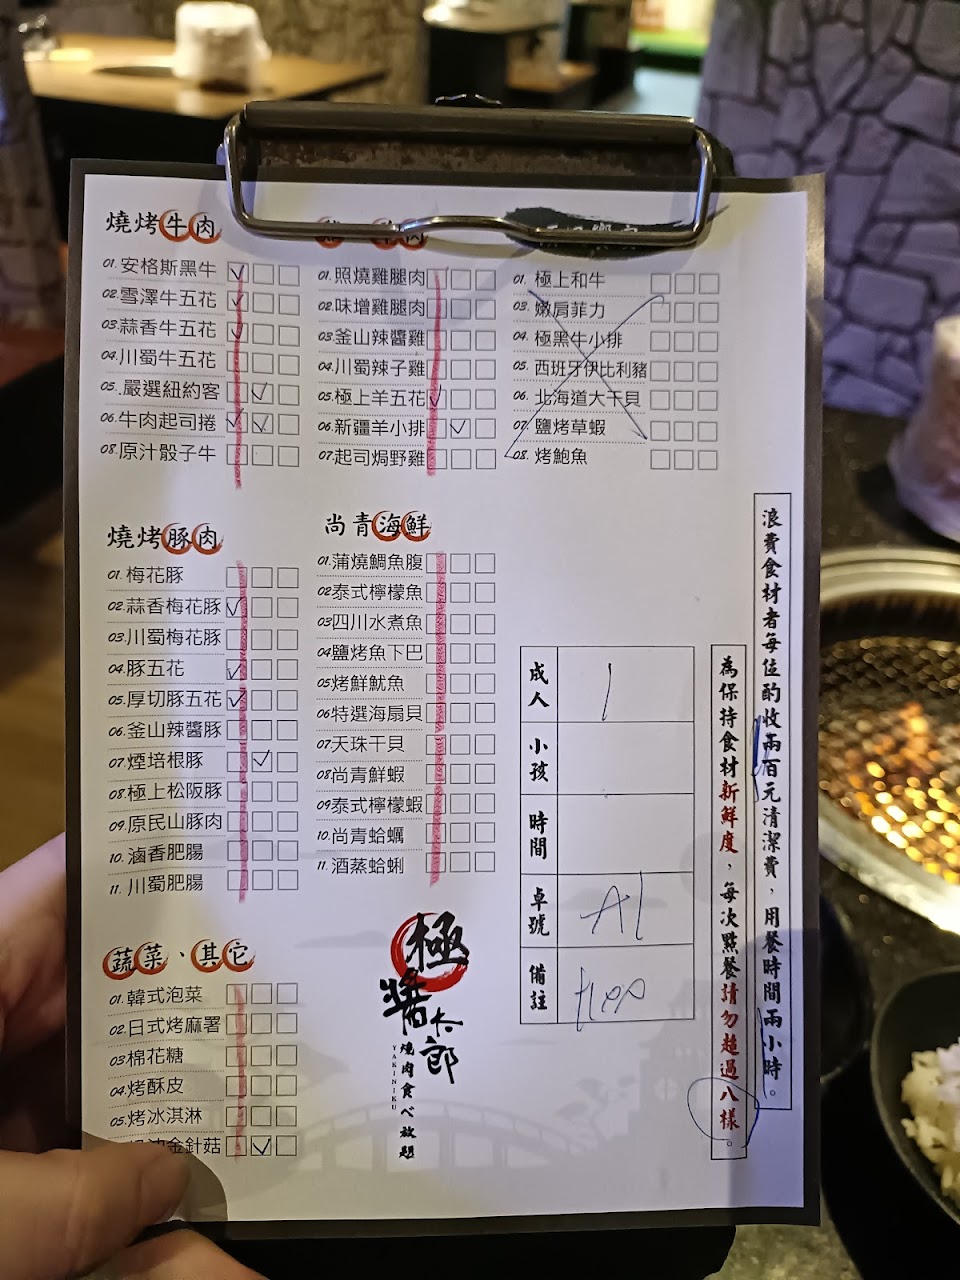 燒烤牛肉
01.安格斯黑牛
02.雪澤牛五花
03.蒜香牛五花
04.川蜀牛五花
05.嚴選紐約客
06.牛肉起司捲
08.原汁骰子牛
01.照燒雞腿肉
02.味增雞腿肉
03.釜山辣醬雞
04.川蜀辣子雞
05.極上羊五花
06.新疆羊小排
07.起司焗野雞
01.極上和牛
03.嫩肩菲力
04.極黑牛小排
05.西班牙伊比利豬
06.北海道大干貝
07.鹽烤草蝦
08.烤鮑魚
燒烤豚肉
01.梅花豚
02.蒜香梅花豚
03.川蜀梅花豚
04.豚五花
05.厚切豚五花
06.釜山辣醬豚
07.煙培根豚
08.極上松阪豚
09.原民山豚肉
10.滷香肥腸
11.川蜀肥腸
尚青海鮮
01.蒲燒鯛魚腹
02.泰式檸檬魚
03.四川水煮魚
04.鹽烤魚下巴
05.烤鮮魷魚
06.特選海扇貝
07.天珠干貝
08.尚青鮮蝦
09.泰式檸檬蝦
10.尚青蛤蠣
11.酒蒸蛤蜊
蔬菜、其它
01.韓式泡菜
02.日式烤麻署
03.棉花糖
04.烤酥皮
05.烤冰淇淋
金針菇
極醬太郎
燒肉食べ放題
YAKINIKU
成人 1
小孩
時間
卓號 A1
備註
為保持食材新鮮度，每次點餐請勿超過八樣。
浪費食材者每位酌收兩百元清潔費，用餐時間兩小時。